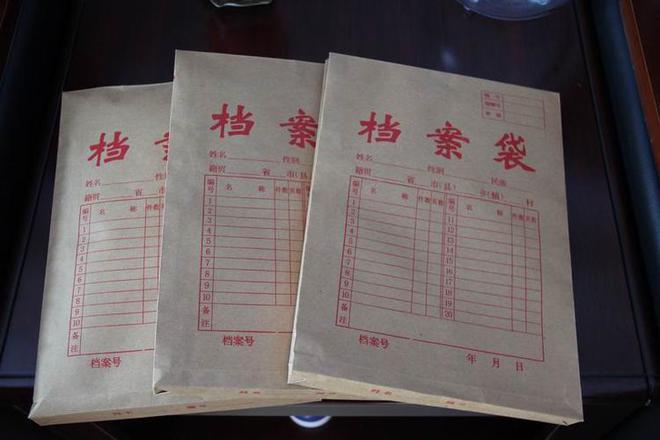 档案
姓名 性别
籍贯 省 市
编号 名称 件数
1
2
3
4
5
6
7
8
9
10
备注
档案号
档案
姓名 性别
籍贯 省 市(县
编号 名称 件数 页数
1
2
3
4
5
6
7
8
9
10
备注
档案号
档案袋
姓名 性别 民族
籍贯 省 市(县) 乡(镇) 村
编号 名称 件数 页数 编号 名称 件数 页数
1 11
2 12
3 13
4 14
5 15
6 16
7 17
8 18
9 19
10 20
备注
档案号 年 月 日